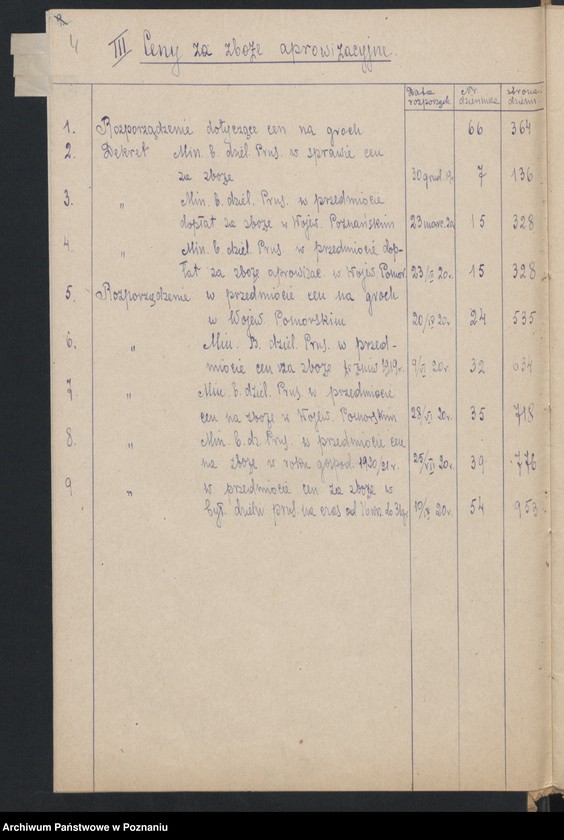 4
III Ceny za zboże aprowizacyjne.
Data rozporządz. Nr. dziennika strona dzienn.
1. Rozporządzenie dotyczące cen na groch 66 364
2. Dekret Min. b. dziel. Prus. w sprawie cen
za zboże 30 grud. 19. 7 136
3. " Min. b. dziel. Prus. w przedmiocie
dopłat za zboże w Wojew. Poznańskim 23 marc. 20 15 328
4. " Min. b. dziel. Prus. w przedmiocie dop-
łat za zboże aprowizac. w Wojew. Pomor. 23/III 20r. 15 328
5. Rozporządzenie w przedmiocie cen na groch
w Wojew. Pomorskim 20/IV 20r. 24 535
6. " Min. B. dziel. Prus. w przed-
miocie cen za zboże 1919r. 9/VI 20r. 32 634
7. " Min. b. dziel. Prus. w przedmiocie
cen na zboże w Wojew. Pomorskim 28/VI 20r. 35 718
8. " Min. b. dz. Prus. w przedmiocie cen
na zboże w roku gospod. 1920/21r. 25/VII 20r. 39 776
9 " w przedmiocie cen za zboże w
był. dzieln prus na czas od 20r. 54 953
Archiwum Państwowe w Poznaniu